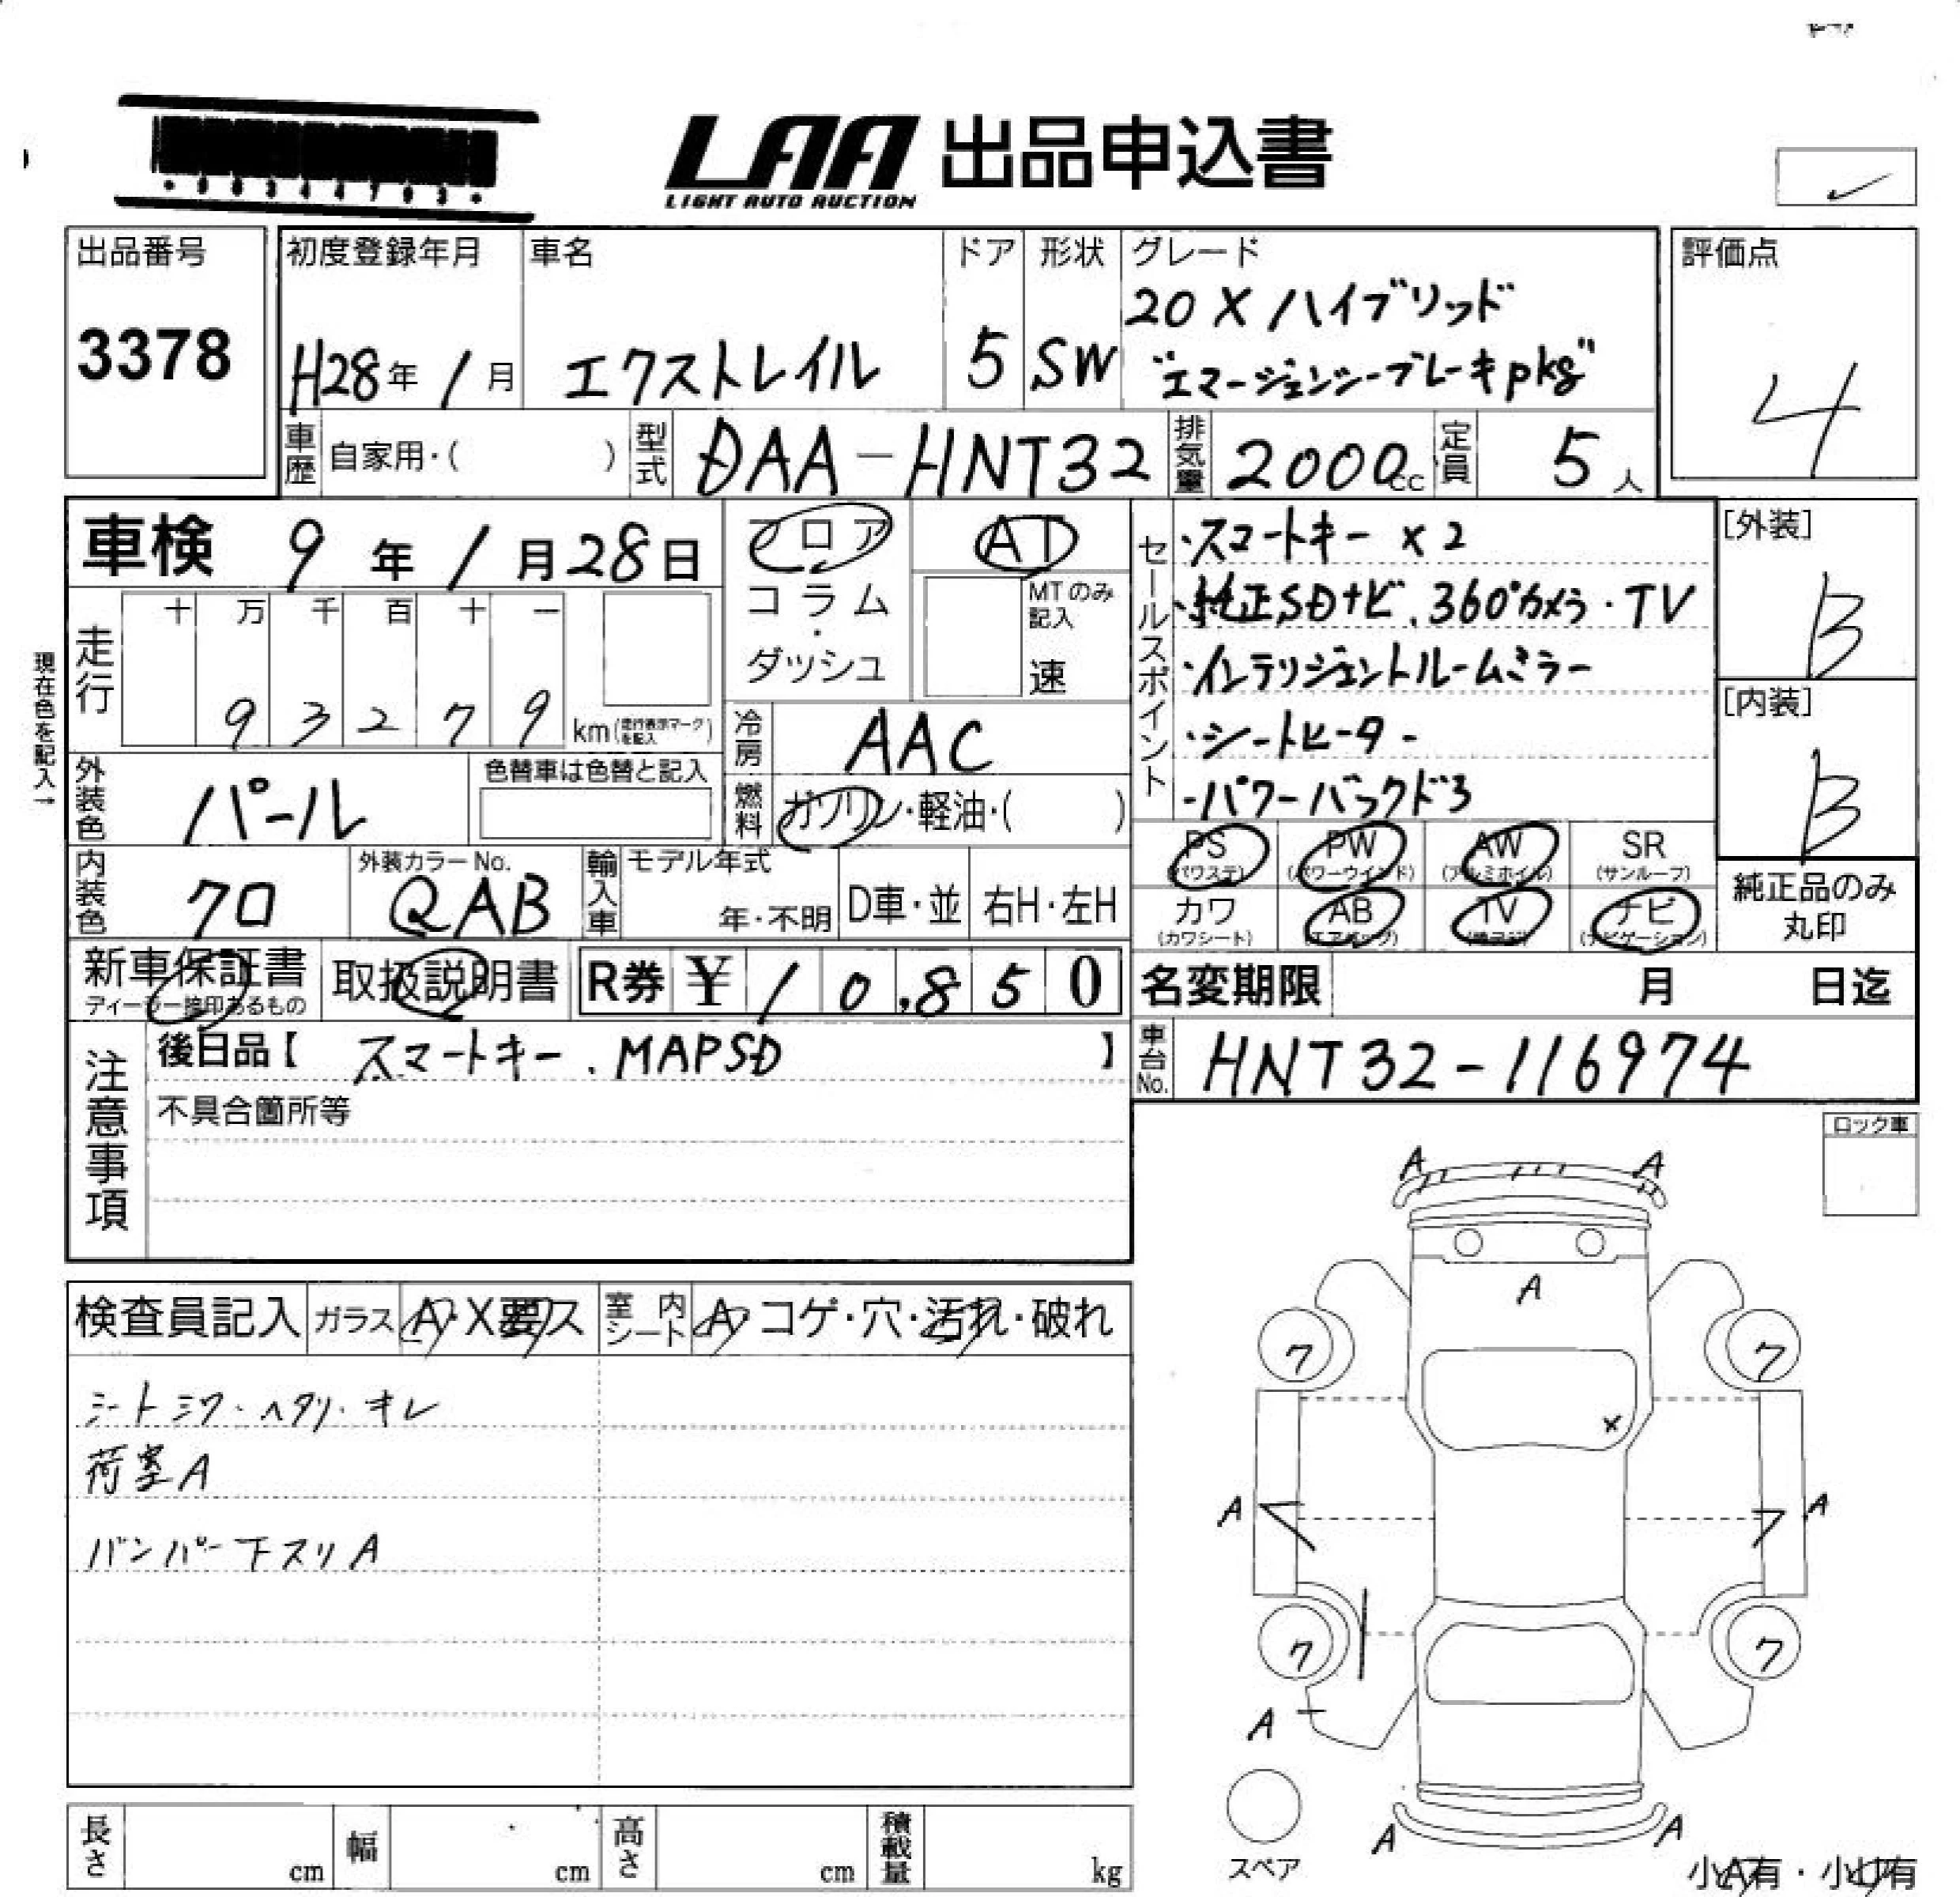 LAA 出品申込書
LIGHT AUTO AUCTION
出品番号
3378
初度登録年月
H28年 1月
車名
エクストレイル
ドア
5
形状
SW
グレード
20X ハイブリッド
"エマージェンシーブレーキpkg"
評価点
4
車歴
自家用・( )
型式
DAA-HNT32
排気量
2000cc
定員
5人
車検 9年 1月28日
走行
十 万 千 百 十 一
9 3 2 7 9 km (走行表示マークを記入)
現在色を記入→
フロア
コラム
・
ダッシュ
AT
MTのみ記入
速
冷房
AAC
燃料
ガソリン・軽油・( )
セールスポイント
・スマートキー ×2
・純正SDナビ.360°カメラ・TV
・インテリジェントルームミラー
・シートヒーター
-パワーバックドア
[外装]
B
[内装]
B
外装色
パール
色替車は色替と記入
内装色
クロ
外装カラーNo.
QAB
輸入車
モデル年式
年・不明
D車・並
右H・左H
PS
(パワステ)
PW
(パワーウインド)
AW
(アルミホイル)
SR
(サンルーフ)
カワ
(カワシート)
AB
(エアバッグ)
TV
ナビ
(ナビゲーション)
純正品のみ
丸印
新車保証書
ディーラー捺印あるもの
取扱説明書
R券 ¥10,850
名変期限 月 日迄
注意事項
後日品【 スマートキー.MAPSD 】
不具合箇所等
車台No.
HNT32-116974
ロック車
検査員記入
ガラス
A・X要ス
室内シート
A コゲ・穴・汚れ・破れ
シートシワ・ヘタリ・キレ
荷室A
バンパー下スリA
A A
A
フ フ
X
A A
フ フ
A
A A
スペア
小A有・小U有
長さ cm
幅 cm
高さ cm
積載量 kg